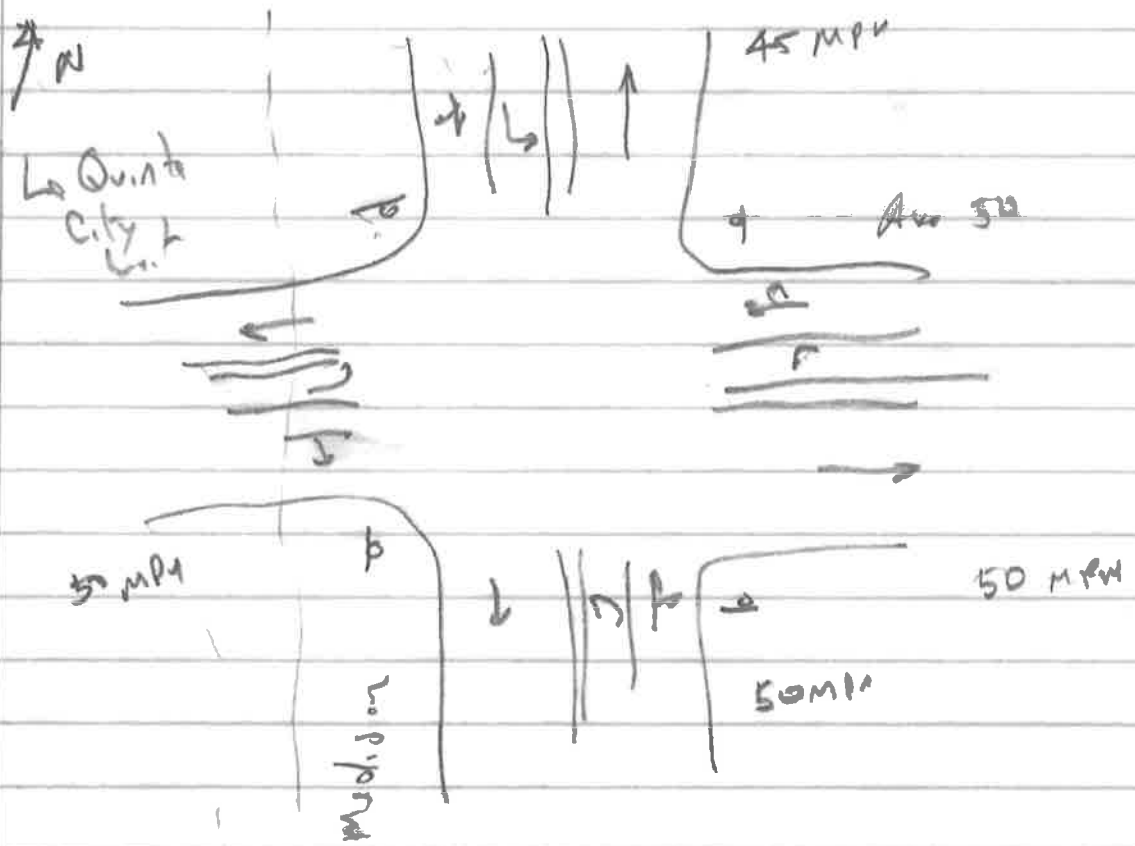 N
45 MPH
La Quinta
City L
Ave 50
50 MPH
50 MPH
50 MPH
Madison